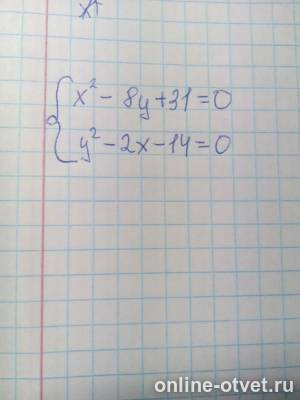 x² - 8y + 31 = 0
y² - 2x - 14 = 0
online-otvet.ru